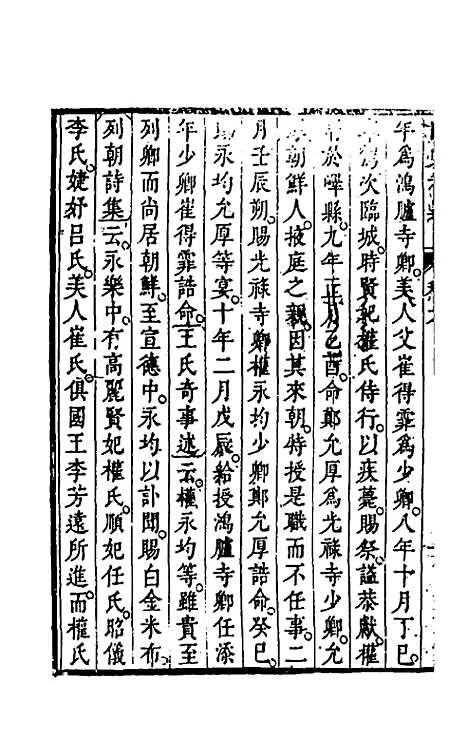 年爲鴻臚寺卿美人父崔得霏爲少卿八年十月丁巳
次臨城時賢妃權氏侍行以疾薨賜祭謚恭獻權
於嶧縣九年正月己酉命鄭允厚爲光祿寺少卿允
朝鮮人掖庭之親因其來朝特授是職而不任事二
月壬辰朔賜光祿寺卿權永均少卿鄭允厚誥命癸巳
永均允厚等宴十年二月戊辰給授鴻臚寺卿任添
年少卿崔得霏誥命王氏奇事述云權永均等雖貴至
列卿而尚居朝鮮至宣德中永均以訃聞賜白金米布
列朝詩集云永樂中有高麗賢妃權氏順妃任氏昭儀
李氏婕妤呂氏美人崔氏俱國王李芳遠所進而權氏